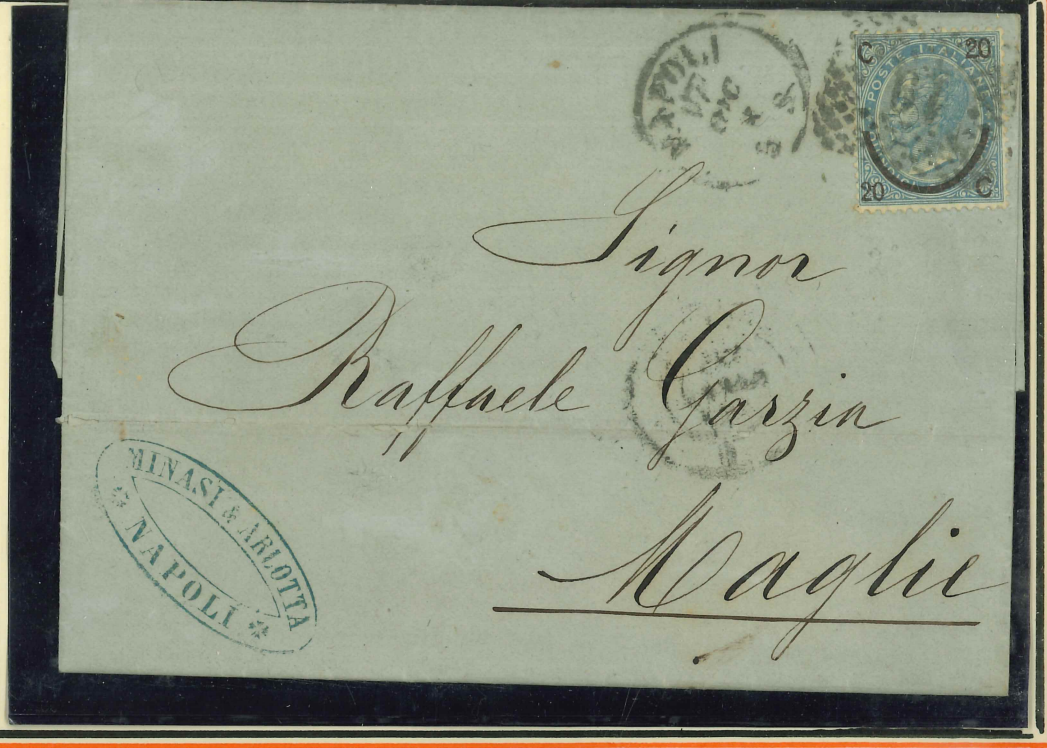 NAPOLI
17
DIC
C 20
POSTE ITALIANE
20 C
Signor
Raffaele Garzia
Maglie
MINASI & ARLOTTA
NAPOLI